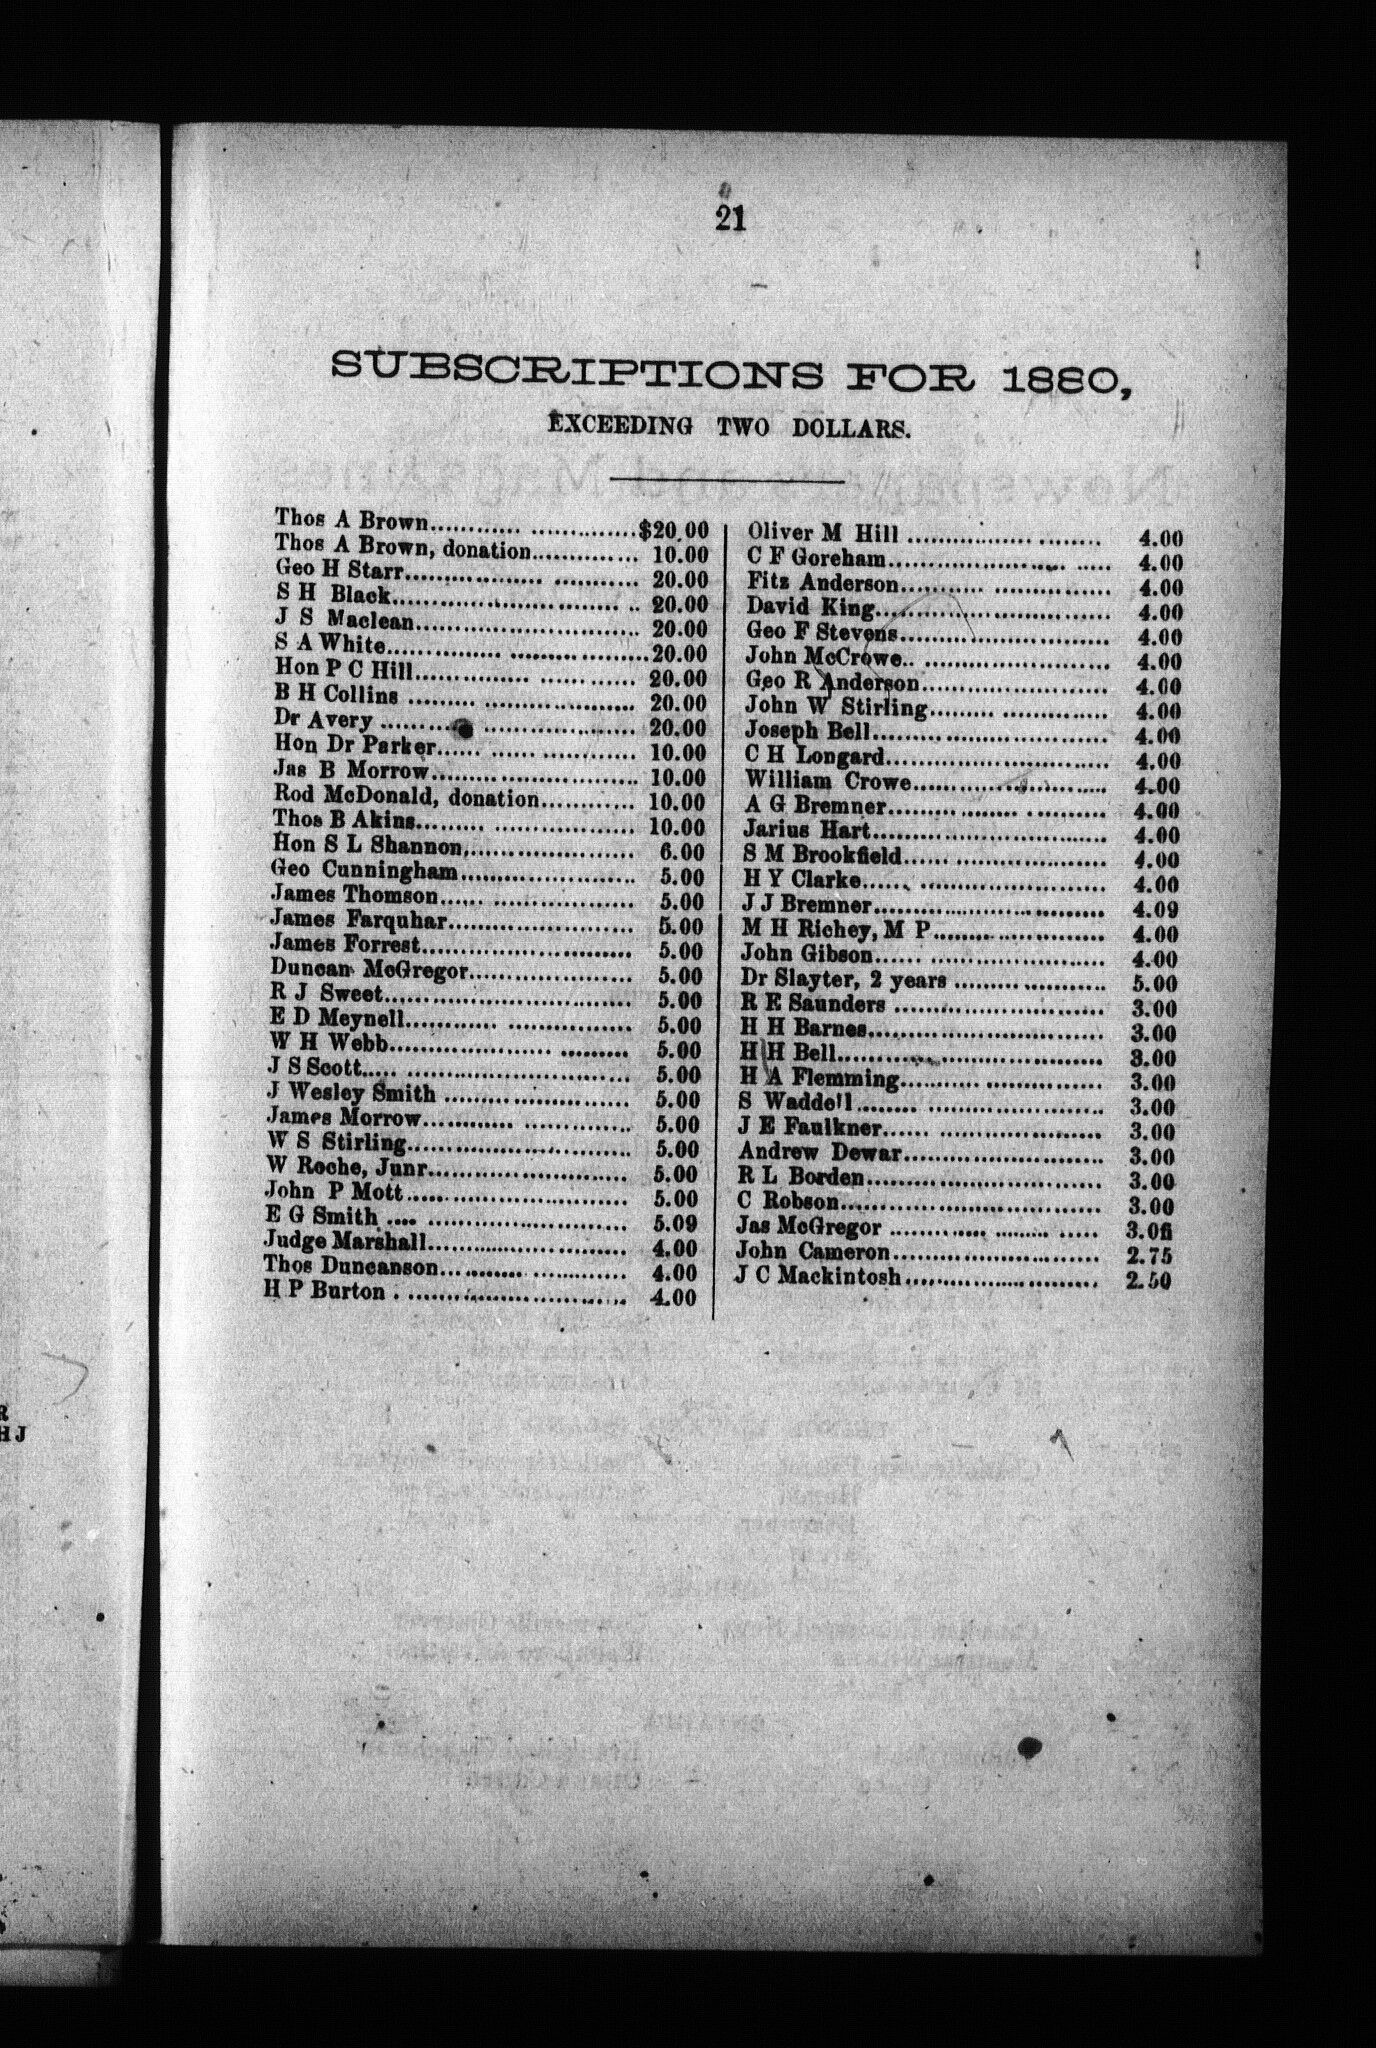 21
SUBSCRIPTIONS FOR 1880,
EXCEEDING TWO DOLLARS.
Thos A Brown........................$20.00
Thos A Brown, donation............. 10.00
Geo H Starr........................ 20.00
S H Black.......................... 20.00
J S Maclean........................ 20.00
S A White..........................20.00
Hon P C Hill....................... 20.00
B H Collins ....................... 20.00
Dr Avery .......................... 20.00
Hon Dr Parker...................... 10.00
Jas B Morrow....................... 10.00
Rod McDonald, donation............ 10.00
Thos B Akins....................... 10.00
Hon S L Shannon,................... 6.00
Geo Cunningham..................... 5.00
James Thomson...................... 5.00
James Farquhar..................... 5.00
James Forrest...................... 5.00
Duncan McGregor.................... 5.00
R J Sweet.......................... 5.00
E D Meynell........................ 5.00
W H Webb........................... 5.00
J S Scott.......................... 5.00
J Wesley Smith .................... 5.00
James Morrow....................... 5.00
W S Stirling....................... 5.00
W Roche, Junr...................... 5.00
John P Mott........................ 5.00
E G Smith ......................... 5.09
Judge Marshall..................... 4.00
Thos Duncanson..................... 4.00
H P Burton ........................ 4.00
Oliver M Hill ..................... 4.00
C F Goreham........................ 4.00
Fitz Anderson...................... 4.00
David King......................... 4.00
Geo F Stevens...................... 4.00
John McCrowe....................... 4.00
Geo R Anderson..................... 4.00
John W Stirling.................... 4.00
Joseph Bell........................ 4.00
C H Longard........................ 4.00
William Crowe...................... 4.00
A G Bremner........................ 4.00
Jarius Hart........................ 4.00
S M Brookfield..................... 4.00
H Y Clarke......................... 4.00
J J Bremner........................ 4.09
M H Richey, M P.................... 4.00
John Gibson........................ 4.00
Dr Slayter, 2 years ............... 5.00
R E Saunders ...................... 3.00
H H Barnes......................... 3.00
H H Bell........................... 3.00
H A Flemming....................... 3.00
S Waddell ......................... 3.00
J E Faulkner....................... 3.00
Andrew Dewar....................... 3.00
R L Borden......................... 3.00
C Robson........................... 3.00
Jas McGregor ...................... 3.00
John Cameron....................... 2.75
J C Mackintosh..................... 2.50
R
HJ